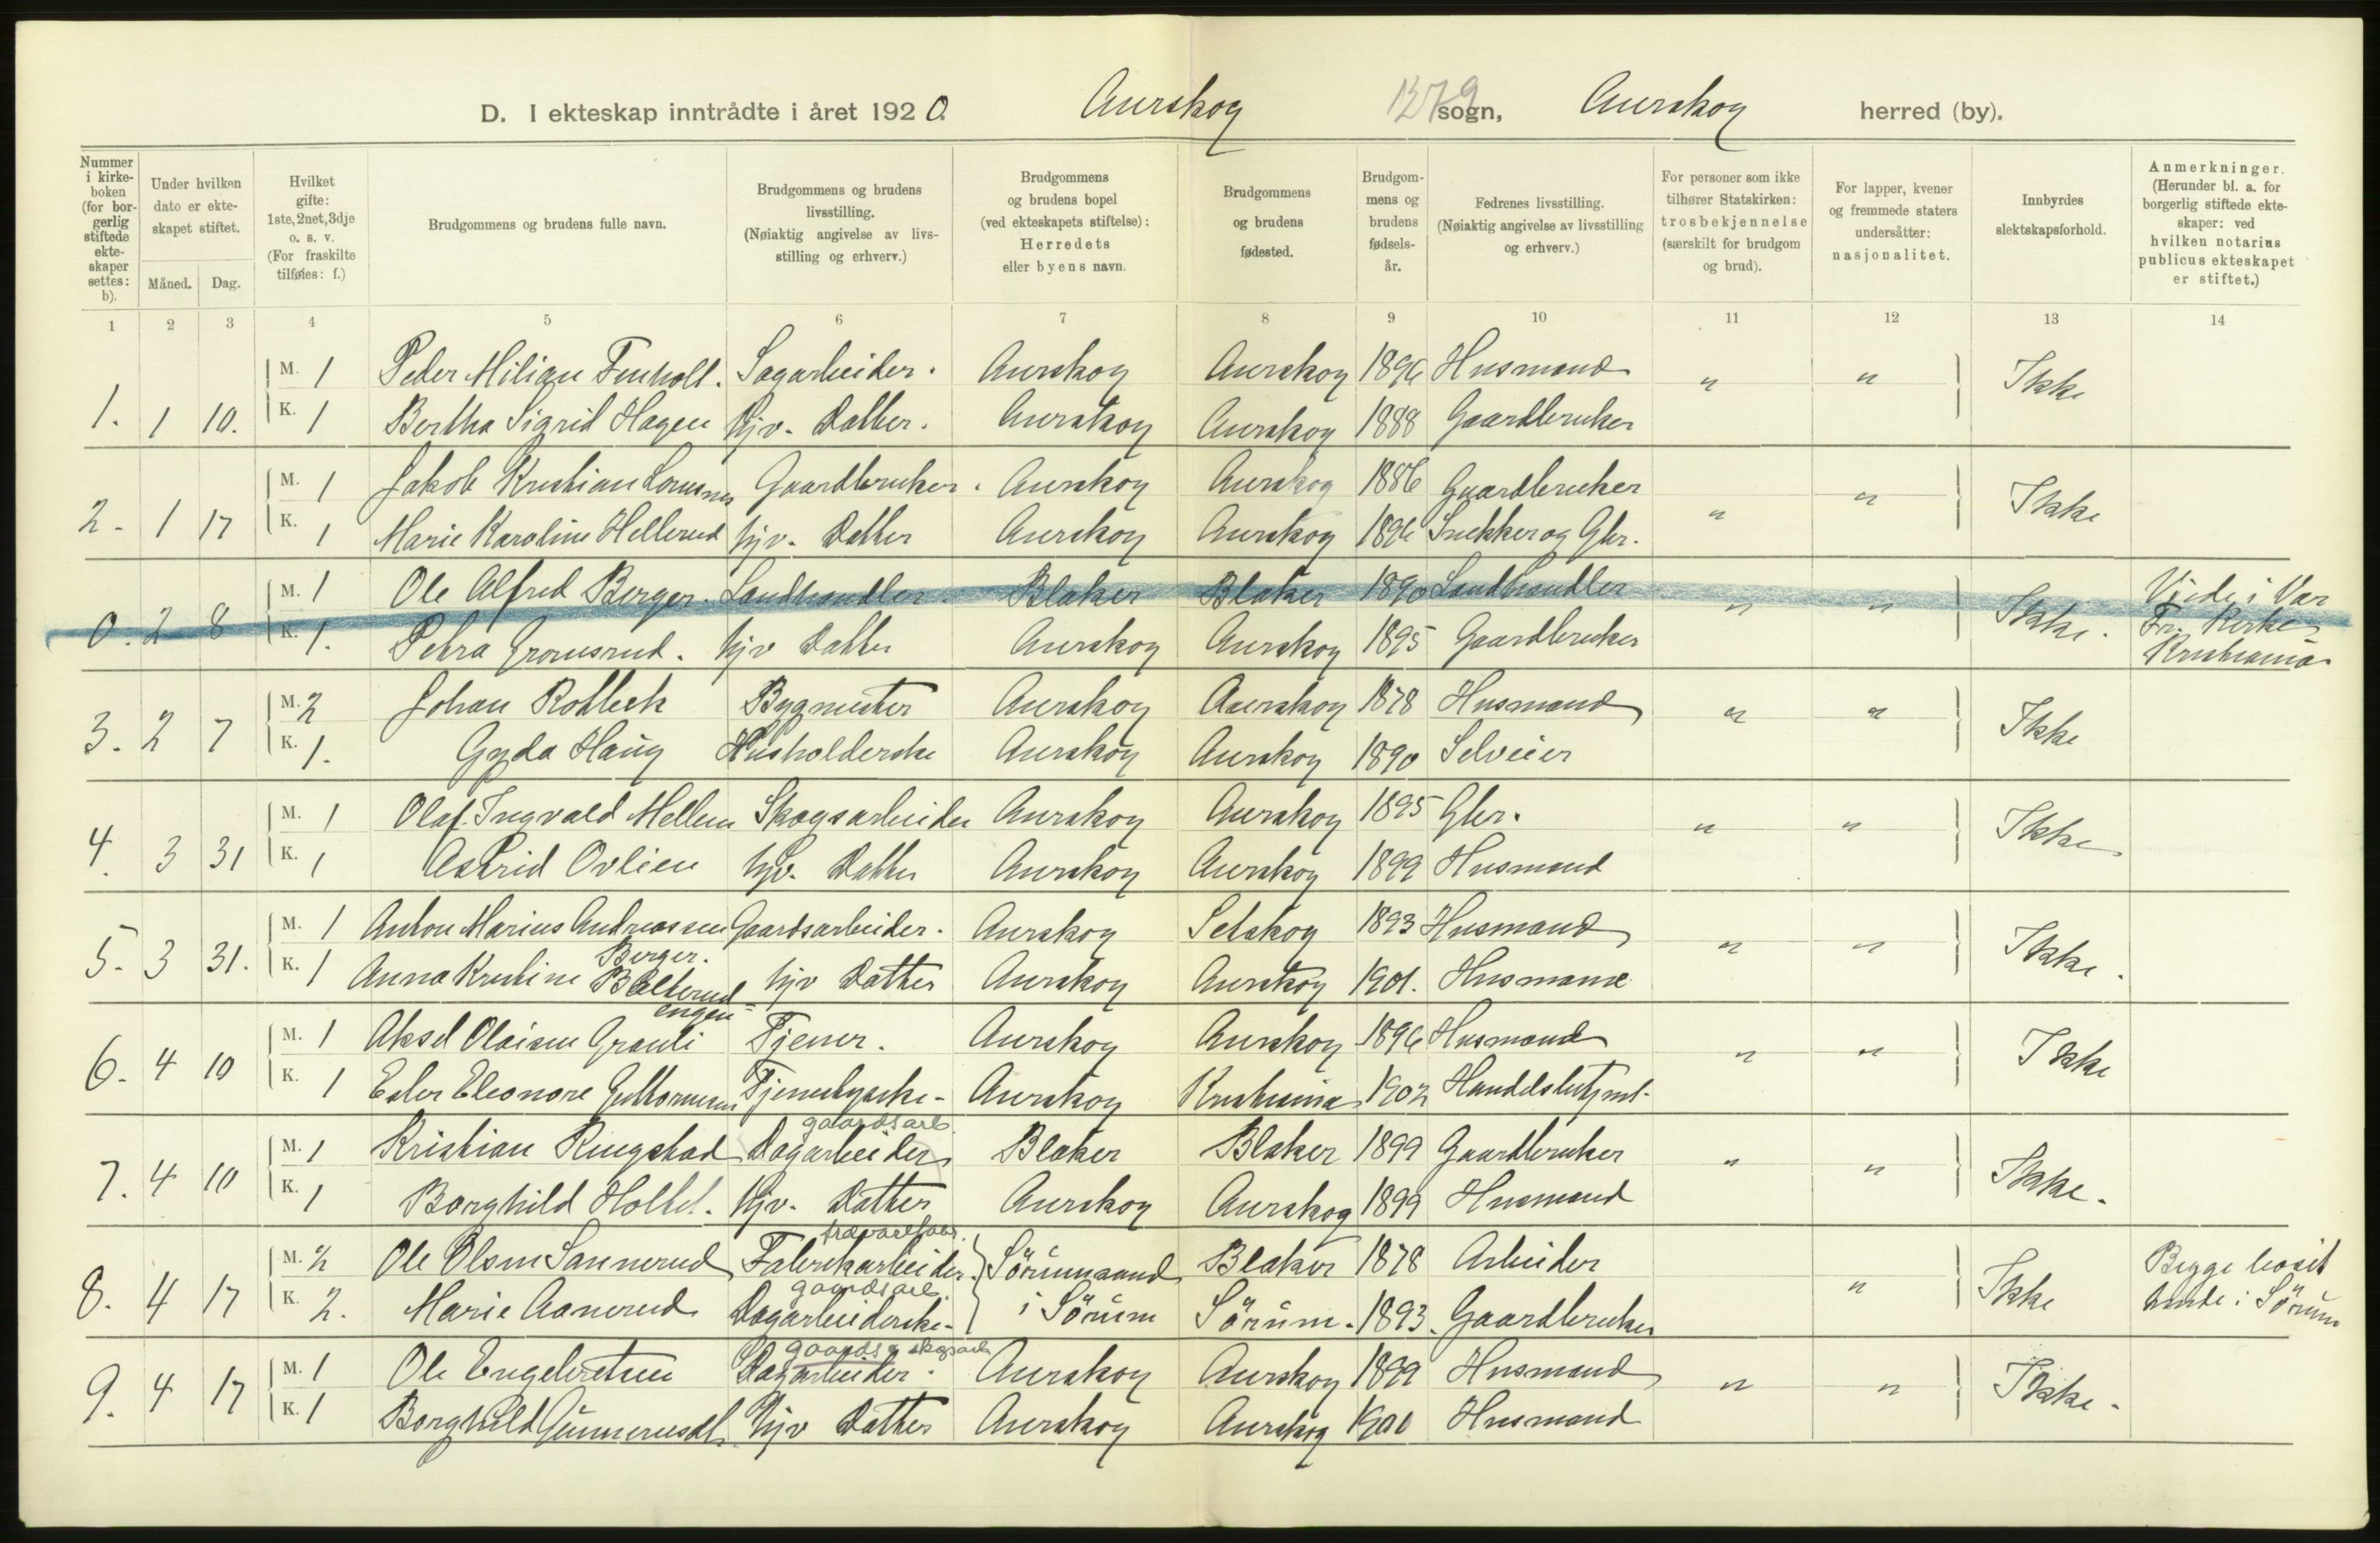 D. I ekteskap inntrådte i året 1920. Aurskog 1379 sogn, Aurskog herred (by).
Nummer i kirkeboken (for borgerlig stiftede ekteskaper settes: b).
Under hvilken dato er ekteskapet stiftet.
Måned. Dag.
Hvilket gifte: 1ste, 2net, 3dje o. s. v. (For fraskilte tilføies: f.)
Brudgommens og brudens fulle navn.
Brudgommens og brudens livsstilling. (Nøiaktig angivelse av livsstilling og erhverv.)
Brudgommens og brudens bopel (ved ekteskapets stiftelse): Herredets eller byens navn.
Brudgommens og brudens fødested.
Brudgommens og brudens fødselsår.
Fedrenes livsstilling. (Nøiaktig angivelse av livsstilling og erhverv.)
For personer som ikke tilhører Statskirken: trosbekjennelse (særskilt for brudgom og brud).
For lapper, kvener og fremmede staters undersåtter: nasjonalitet.
Innbyrdes slektskapsforhold.
Anmerkninger. (Herunder bl. a. for borgerlig stiftede ekteskaper: ved hvilken notarius publicus ekteskapet er stiftet.)
1 2 3 4 5 6 7 8 9 10 11 12 13 14
M. 1 Peder Milian Finholt. Sagarbeider. Aurskog Aurskog 1896 Husmand " " Ikke
1. 1 10. K. 1 Bertha Sigrid Hagen Hjv. Datter. Aurskog Aurskog 1888 Gaardbruker
M. 1 Jakob Kristian Gaardbruker. Aurskog Aurskog 1886 Gaardbruker " " Ikke
2. 1 17 K. 1 Marie Karoline Hellerud Hjv. Datter Aurskog Aurskog 1896 Snekker og Gbr.
M. 1 Ole Alfred Berger. Landhandler. Blaker Blaker 1890 Landhandler " " Ikke. Viede i Vor
0. 2 8 K. 1. Petra Gromsrud. Hjv Datter Aurskog Aurskog 1895 Gaardbruker Fr. Kirke, Kristiania
M. 2 Johan Rotbeck Bygmester Aurskog Aurskog 1878 Husmand " " Ikke
3. 2 7 K. 1. Gyda Haug Husholderske Aurskog Aurskog 1890 Selveier
M. 1 Olaf Ingvald Mellem Skogsarbeider Aurskog Aurskog 1895 Gbr. " " Ikke
4. 3 31 K. 1 Astrid Ovlien Hjv. Datter Aurskog Aurskog 1899 Husmand
M. 1 Anton Marius Andreassen Berger. Gaardsarbeider. Aurskog Setskog 1893 Husmand " " Ikke.
5. 3 31. K. 1 Anna Kristine Bølterudengen Hjv Datter Aurskog Aurskog 1901. Husmand
M. 1 Aksel Olaisen Granli Tjener. Aurskog Aurskog 1896 Husmand " " Ikke
6. 4 10 K. 1 Ester Eleonore Guttormsen Tjenestepike - Aurskog Kristiania 1902 Handelsbetjent.
gaardsarb.
M. 1 Kristian Ringstad Dagarbeider Blaker Blaker 1899 Gaardbruker " " Ikke.
7. 4 10 K. 1 Borghild Holtet. Hjv. Datter Aurskog Aurskog 1899 Husmand
trævarefabr.
M. 2 Ole Olsen Sannerud Fabrikarbeider. Sörumsand Blaker 1878 Arbeider " Ikke Begge bosit
gaardsarb.
8. 4 17 K. 2. Marie Aanerud Dagarbeiderske - i Sörum Sörum. 1893. Gaardbruker i Sörum
gaards & skogsarb
M. 1 Ole Engebretsen Dagarbeider. Aurskog Aurskog 1899 Husmand " " Ikke.
9. 4 17 K. 1 Borghild Gunnerusdt. Hjv Datter Aurskog Aurskog 1900 Husmand